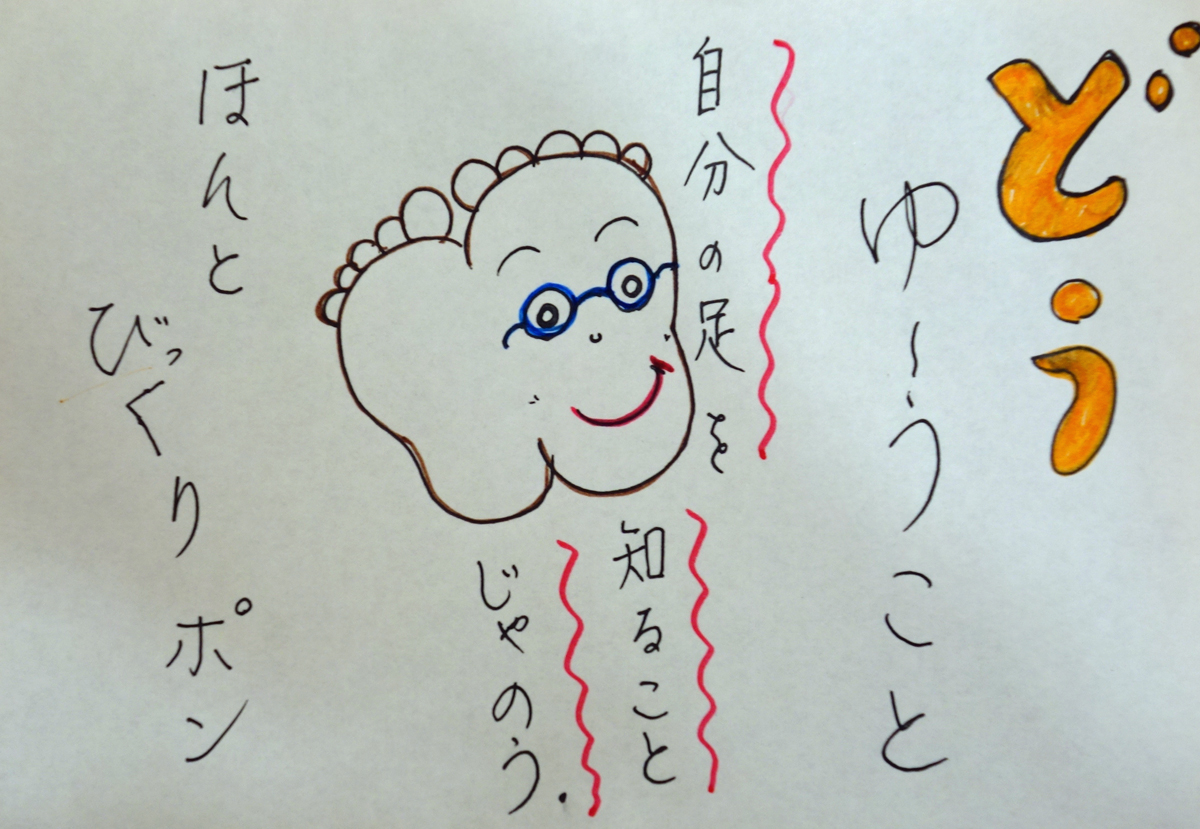 どう
ゆ〜うこと
自分の足を
知ること
じゃのう.
ほんと
びっくりポン